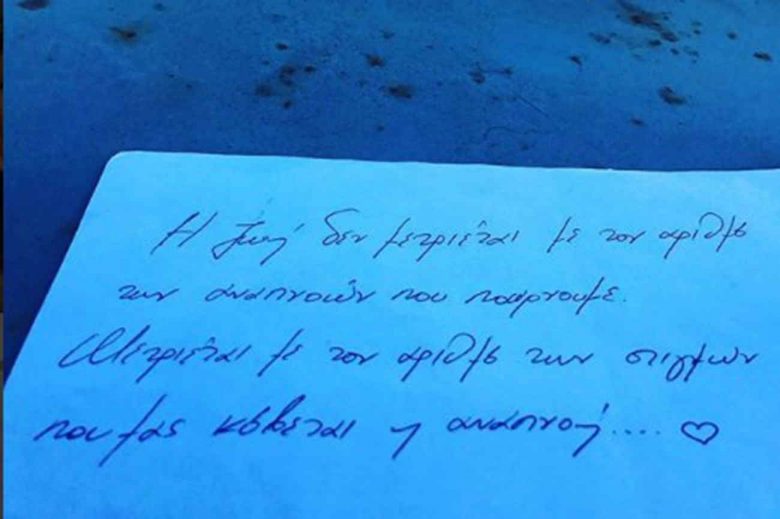 Η ζωή δεν μετριέται με τον αριθμό
των αναπνοών που παίρνουμε.
Μετριέται με τον αριθμό των στιγμών
που μας κόβεται η αναπνοή.... ♡